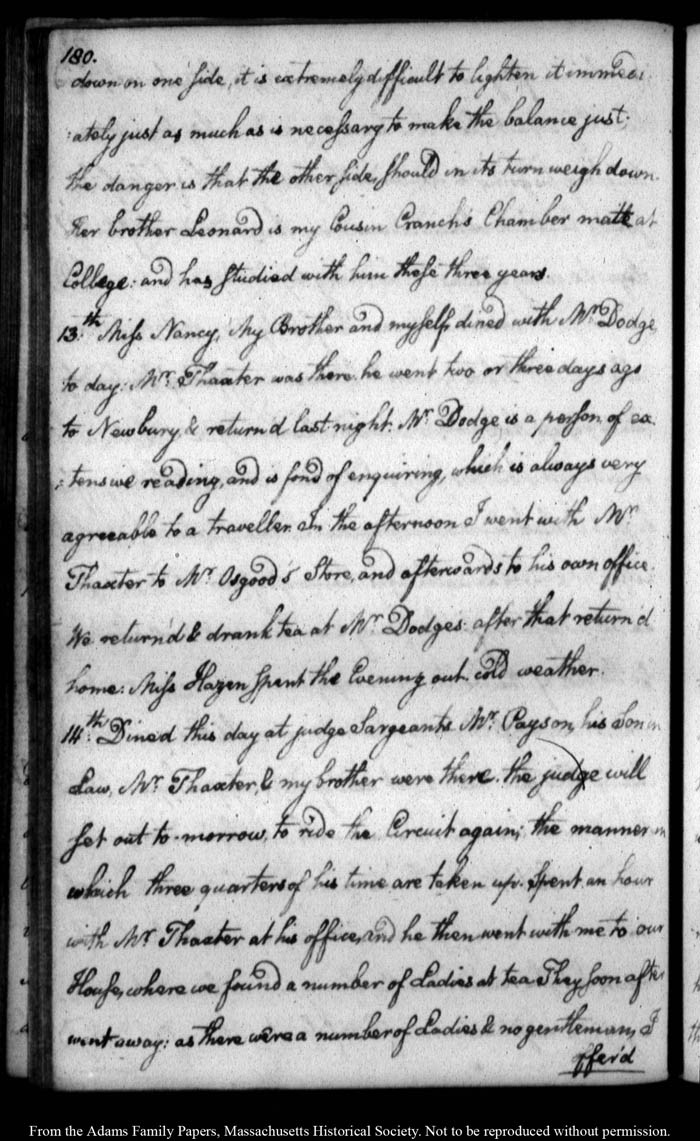 180.
down on one side, it is extremely difficult to lighten it immedi
:ately just as much as is necessary to make the balance just;
the danger is that the other side, should in its turn weigh down.
Her brother Leonard is my Cousin Cranch's Chamber mate at
College: and has studied with him these three years.
13.th Miss Nancy, My Brother and myself, dined with Mr. Dodge,
to day: Mr. Thaxter was there. he went two or three days ago
to Newbury, & return'd last night. Mr. Dodge is a person of ex
:tensive reading, and is fond of enquiring, which is always very
agreeable to a traveller. In the afternoon I went with Mr.
Thaxter to Mr. Osgood's Store, and afterwards to his own office.
We return'd & drank tea at Mr. Dodges: after that return'd
home: Miss Hazen spent the Evening out. cold weather.
14.th Dined this day at judge Sargeants Mr. Payson, his Son in
Law, Mr. Thaxter, & my brother were there. the judge will
set out to-morrow, to ride the Circuit again; the manner in
which three quarters of his time are taken up. Spent an hour
with Mr. Thaxter at his office, and he then went with me to our
House, where we found a number of Ladies at tea They soon after
went away: as there were a number of Ladies & no gentleman, I
offer'd
From the Adams Family Papers, Massachusetts Historical Society. Not to be reproduced without permission.